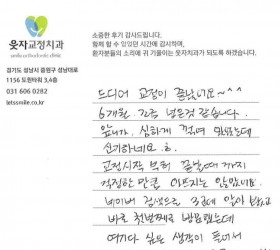 웃자교정치과
소중한 후기 감사드립니다.
함께 할 수 있었던 시간에 감사하며,
환자분들의 소리에 귀 기울이는 웃자치과가 되도록 하겠습니다.
경기도 성남시 중원구 성남대로
1156 도현타워 3,4층
031 606 0282
letssmile.co.kr
드디어 교정이 끝났네요~^^
6개월 가량 넘은것 같습니다.
앞니가 심하게 꺾여 있었는데
신기하네요.ㅎ
교정시작 부터 끝날때 까지
걱정한 만큼 아프지는 않았네요.
네이버 검색으로 3군데 알아 보았고
바로 첫번째로 방문했는데
여기다 싶은 생각이 들어서